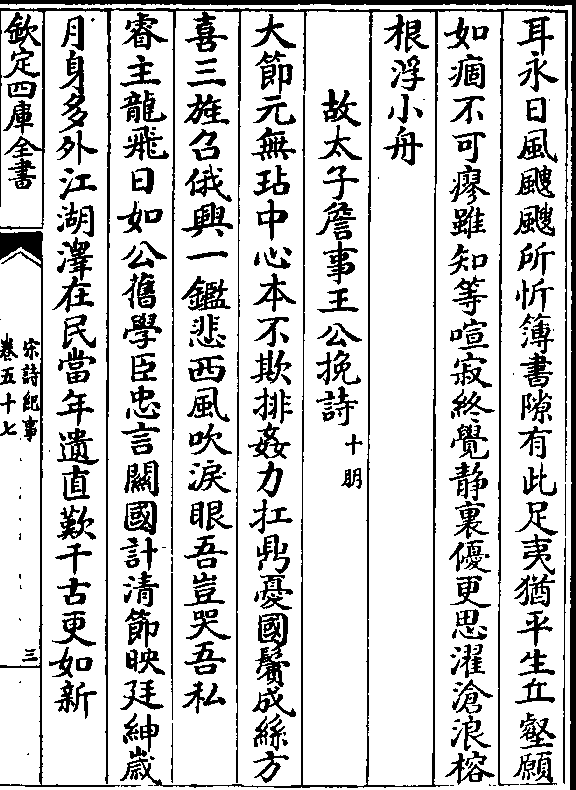 耳永日風颼颼所忻簿書隙有此足夷猶平生丘壑願
如痼不可瘳雖知等喧寂終覺静裏優更思濯滄浪榕
根浮小舟
故太子詹事王公挽詩十朋
大節元無玷中心本不欺排姦力扛鼎憂國鬢成絲方
喜三旌召俄興一鑑悲西風吹淚眼吾豈哭吾私
睿主龍飛日如公舊學臣忠言關國計清節映廷紳歳
月身多外江湖澤在民當年遺直歎千古更如新
欽定四庫全書
宋詩紀事
卷五十七
三